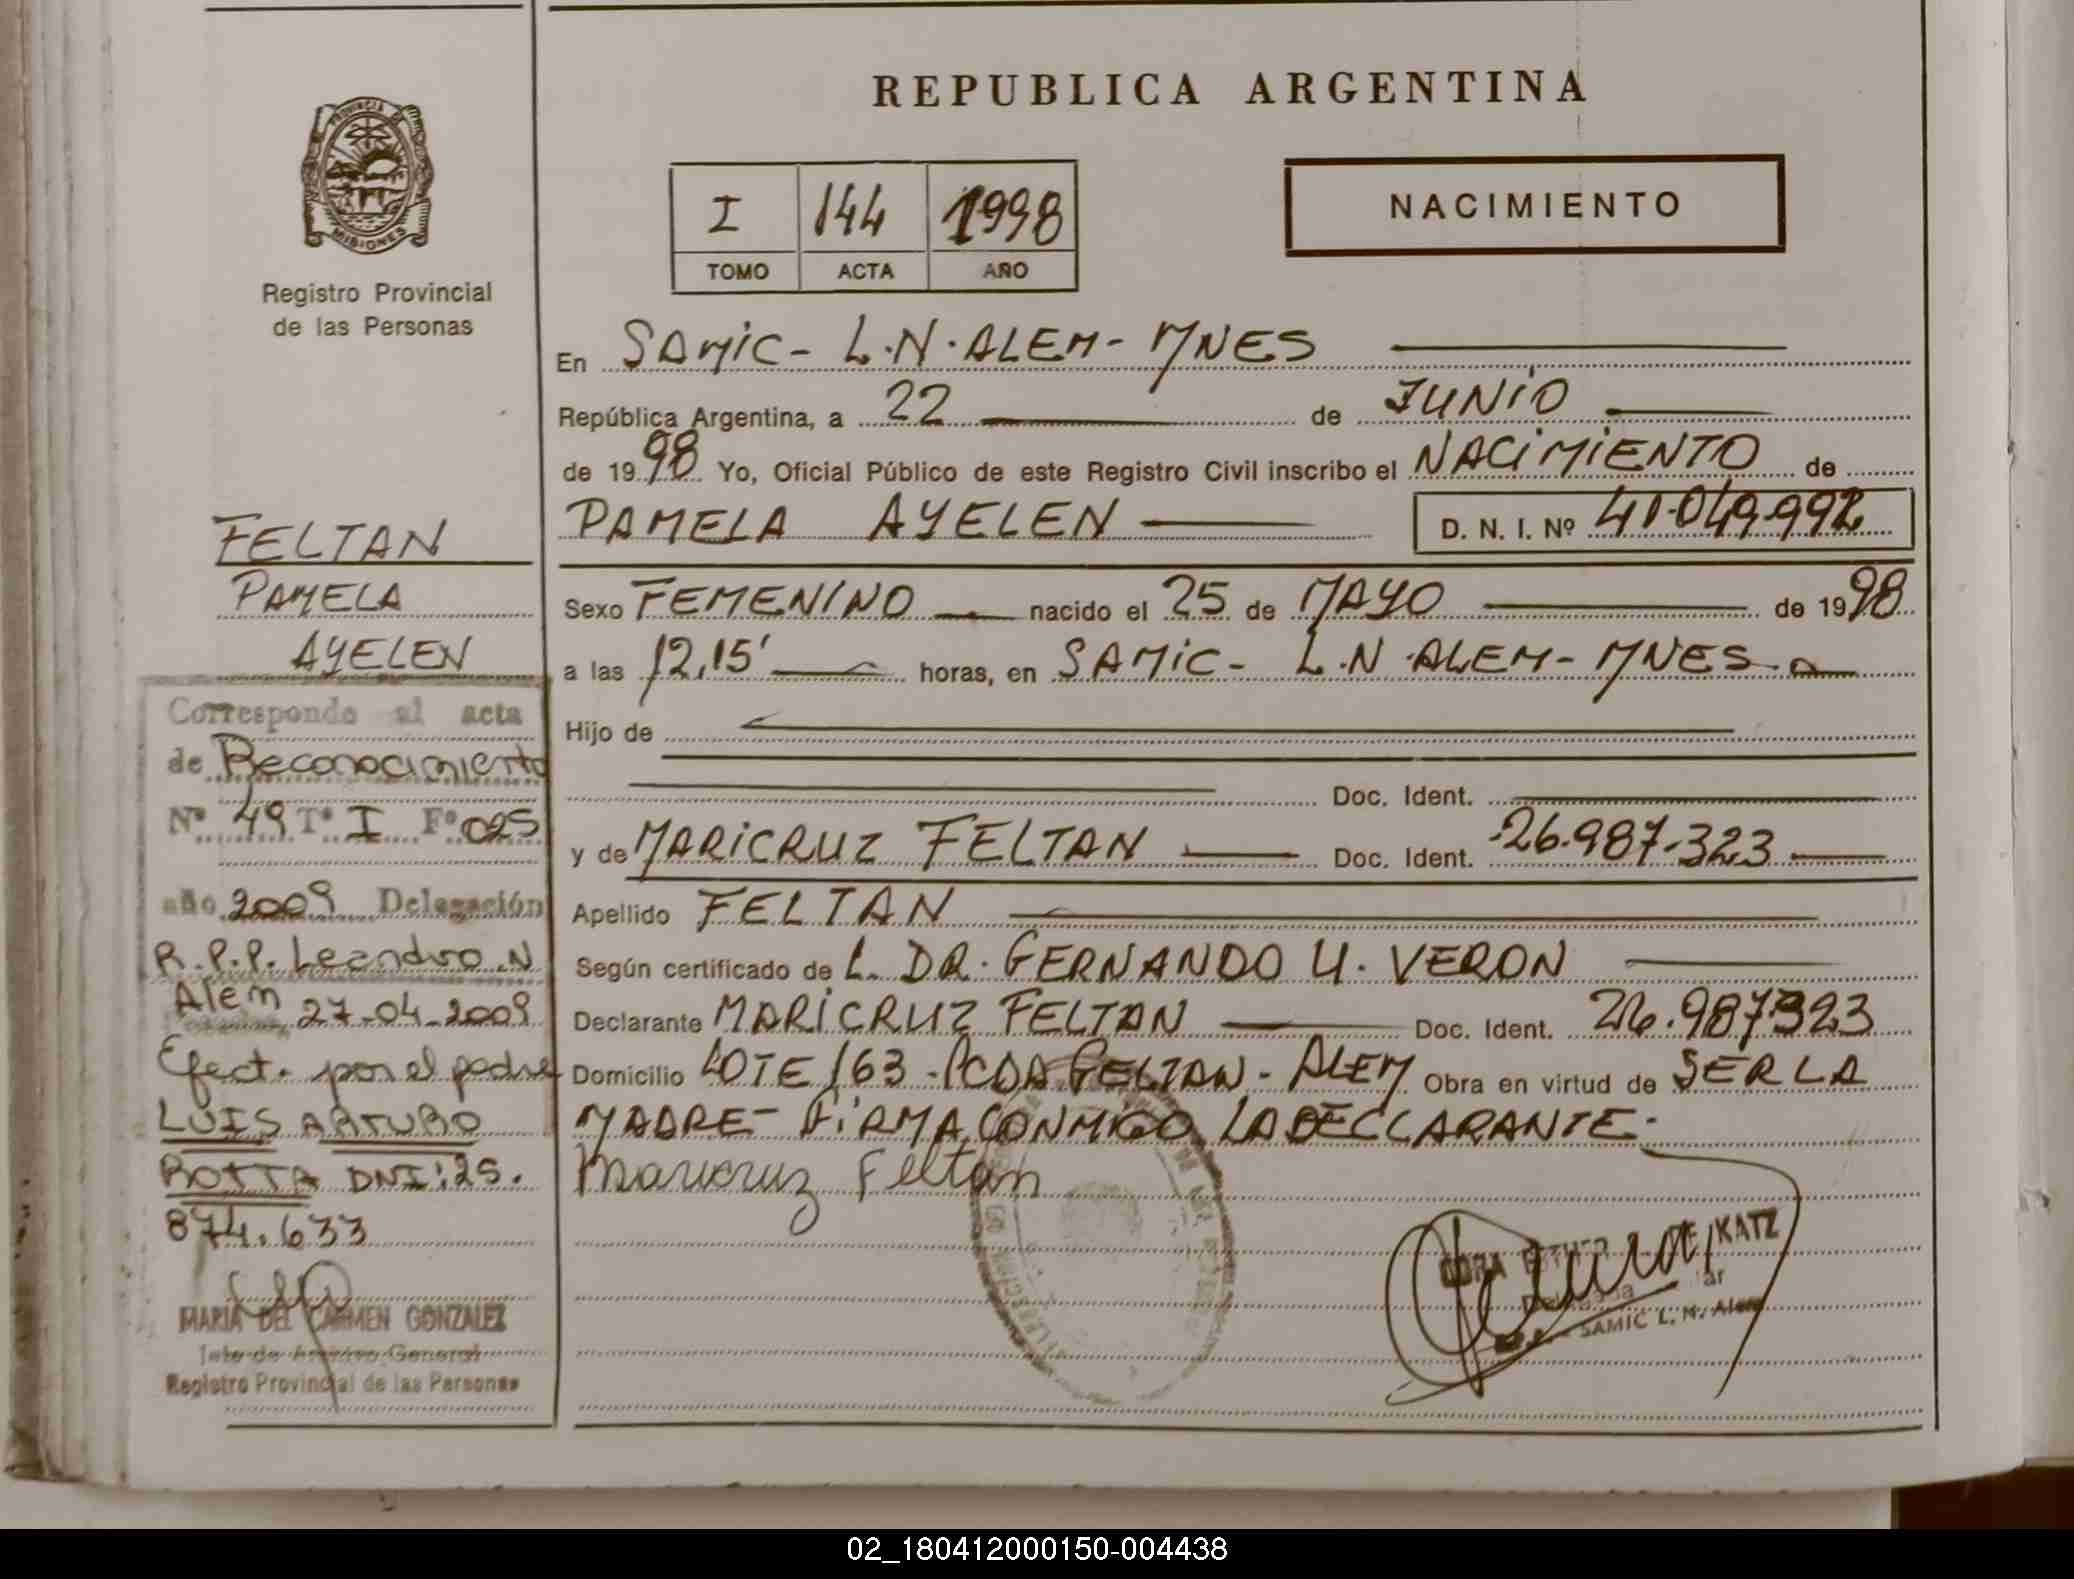 REPUBLICA ARGENTINA
PROVINCIA DE
MISIONES
Registro Provincial
de las Personas
I 144 1998
TOMO ACTA AÑO
NACIMIENTO
En SAMIC - L.N. ALEM - MNES
República Argentina, a 22 de JUNIO
de 1998 Yo, Oficial Público de este Registro Civil inscribo el NACIMIENTO de
PAMELA AYELEN D. N. I. Nº 41.049.992
Sexo FEMENINO nacido el 25 de MAYO de 1998
a las 12,15' horas, en SAMIC - L.N. ALEM - MNES.
Hijo de
Doc. Ident.
y de MARICRUZ FELTAN Doc. Ident. 26.987.323
Apellido FELTAN
Según certificado de L. DR. GERNANDO U. VERON
Declarante MARICRUZ FELTAN Doc. Ident. 26.987.323
Domicilio LOTE 163 - PCDA FELTAN - ALEM Obra en virtud de SER LA
MADRE - FIRMA CONMIGO LA DECLARANTE.
Maricruz Feltan
CORA ESTHER DE KATZ
SAMIC L. N. Alem
FELTAN
PAMELA
AYELEN
Corresponde al acta
de Reconocimiento
Nº 49 Tº I Fº 025
año 2009 Delegación
R.P.P. Leandro N
Alem 27-04-2009
Efect. por el padre
LUIS ARTURO
BOTTA DNI: 25.
874.633
MARIA DEL CARMEN GONZALEZ
Jefe de Archivo General
Registro Provincial de las Personas
02_180412000150-004438